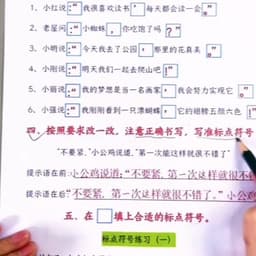 1、小红说：“我很喜欢读书，每天都会读一会。”
2、老屋问：“小蜘蛛，你吃饱了吗？”
3、小明说：“今天我去了公园，那里的花真美。”
4、小刚说：“明天我们一起去爬山吧！”
5、小丽说：“我的梦想是当一名画家，我会努力实现它。”
6、小强说：“我刚刚看到一只漂蝴蝶，它的翅膀五颜六色！”
四、按照要求改一改，注意正确书写，写准标点符号
“不要紧，”小公鸡说道，“第一次能这样就很不错了”
提示语在前：小公鸡说道：“不要紧，第一次这样就很不
提示语在后：“不要紧，第一次这样就很不错了。”小公鸡
五、在□填上合适的标点符号。
标点符号练习（一）